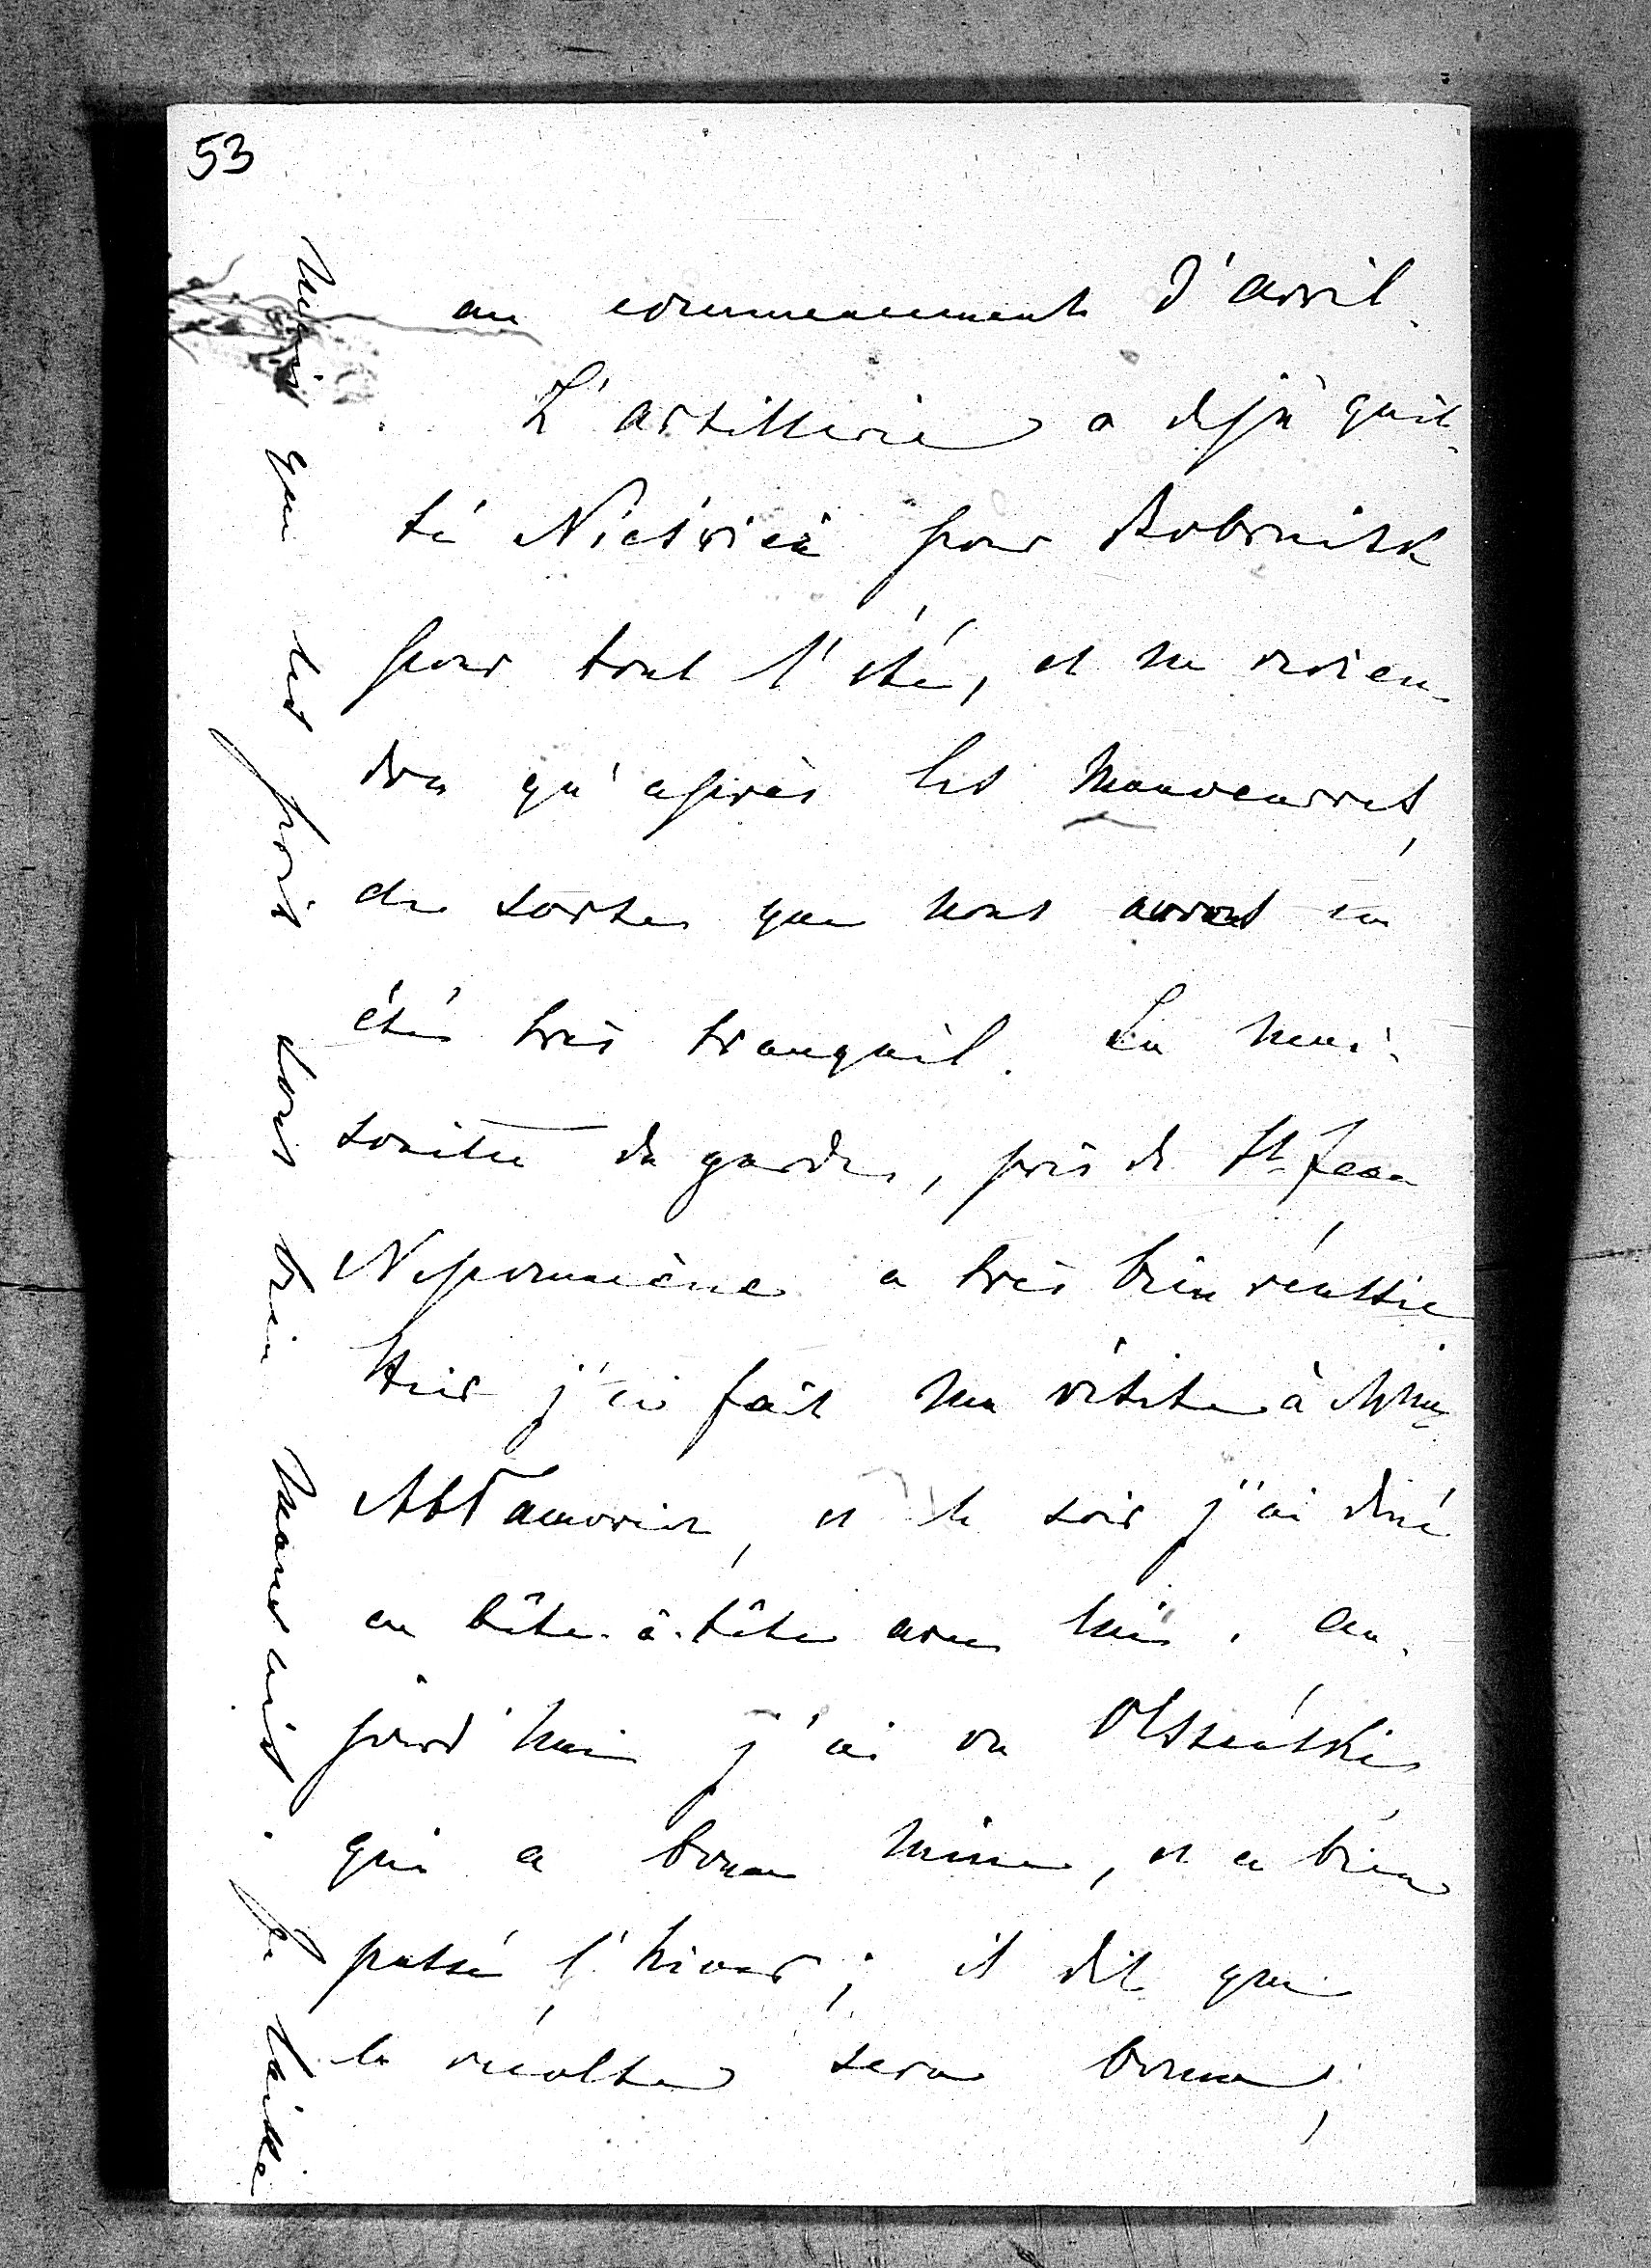 53
au commencement d'avril.
L'artillerie a déjà quit-
té Nieświeź pour Bobruisk
pour tout l'été, et ne revien-
dra qu'après les manoeuvres,
de sorte que nous aurons un
été très tranquil. La mai-
sonitte du garde, près de St. Jean
Nepomucène a très bien réussie
Hier j'ai fait ma visite à Mme
Abłamowicz, et le soir j'ai diné
en tête-à-tête avec lui. Au-
jourd'hui j'ai vu Olszeński,
qui a bonne mine, et a bien
passé l'hiver; il dit que
la récolte sera bonne,
mais que les prix sont bien mauvais. Je